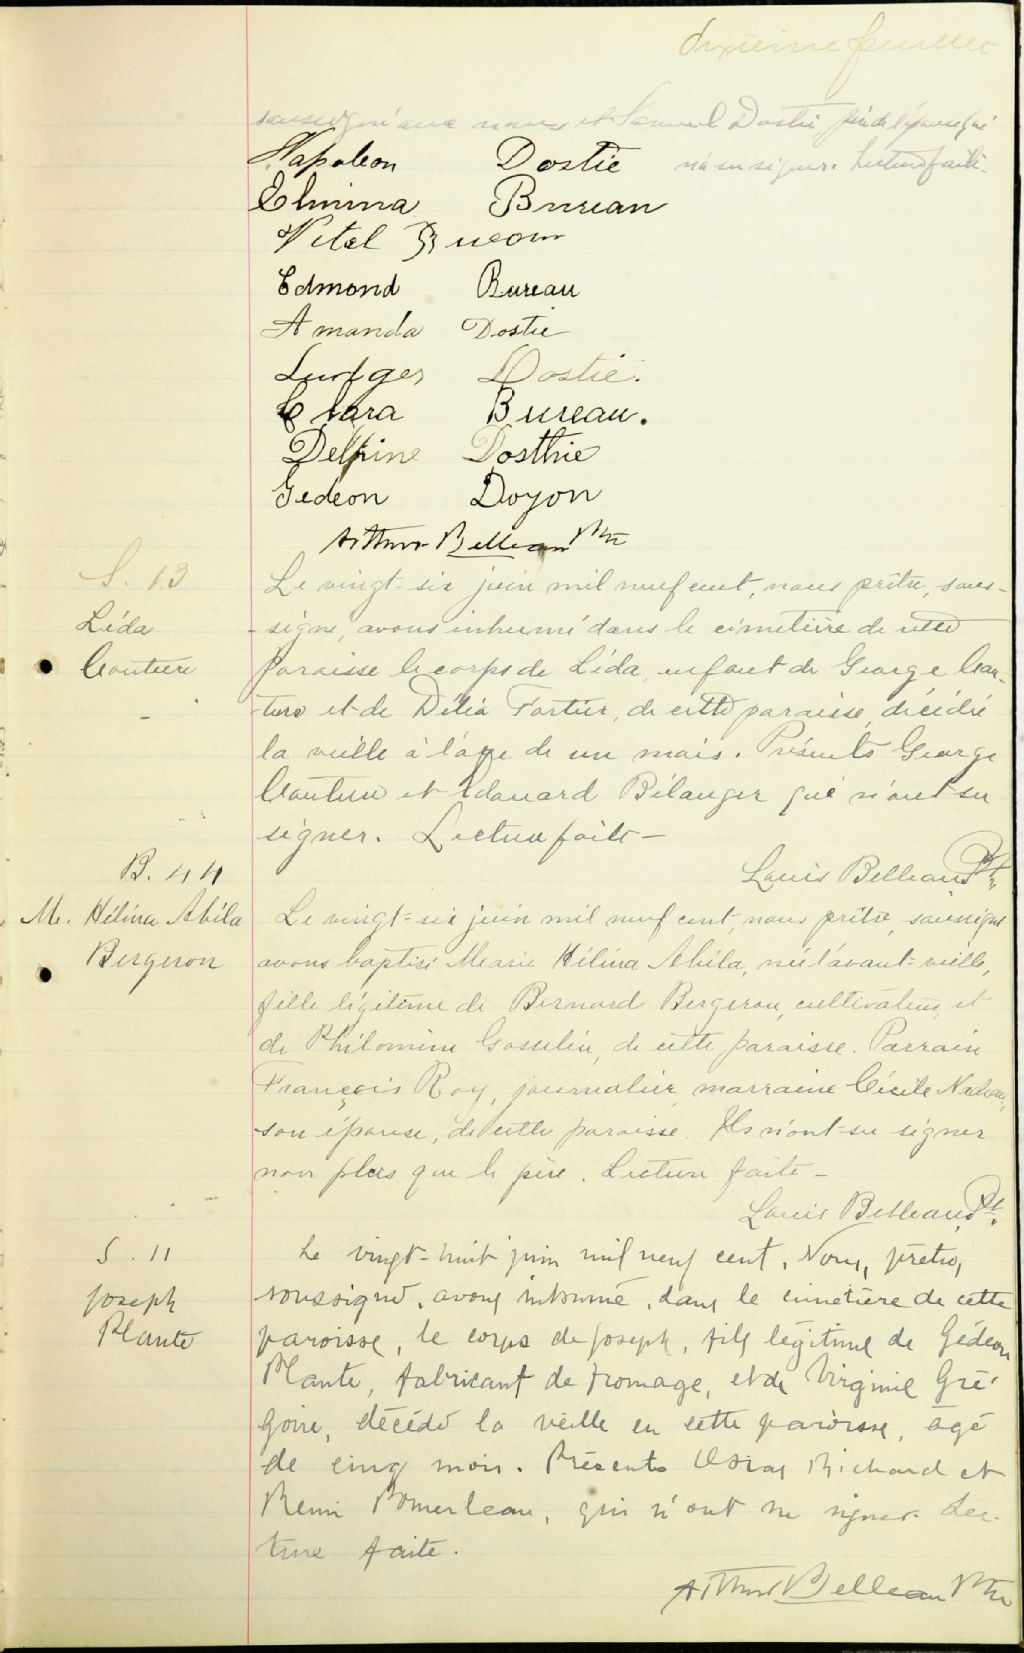 dixième feuillet
soussigné avec nous et Samuel Dostie, père de l'époux qui
n'a su signer. Lecture faite.
Napoleon Dostie
Elmina Bureau
Vital Bureau
Edmond Bureau
Amanda Dostie
Ludger Dostie.
Clara Bureau.
Delphine Dosthie
Gedeon Doyon
Arthur Belleau Ptre
S. 13
Léda
Couture
Le vingt-six juin mil neuf cent, nous prêtre, sous-
-signé, avons inhumé dans le cimetière de cette
paroisse le corps de Léda, enfant de George Cou-
-ture et de Délia Fortier, de cette paroisse, décédée
la veille à l'âge de un mois. Présents George
Couture et Edouard Bélanger qui n'ont su
signer. Lecture faite —
Louis Belleau Ptre
B. 44
M. Hélina Abéla
Bergeron
Le vingt-six juin mil neuf cent, nous prêtre, soussigné
avons baptisé Marie Hélina Abéla, née l'avant-veille,
fille légitime de Bernard Bergeron, cultivateur, et
de Philomène Gosselin, de cette paroisse. Parrain
François Roy, journalier, marraine Cécile Nadeau,
son épouse, de cette paroisse. Ils n'ont su signer
non plus que le père. Lecture faite —
Louis Belleau, Pt.
S. 11
Joseph
Plante
Le vingt-huit juin mil neuf cent, Nous, prêtre,
soussigné, avons inhumé, dans le cimetière de cette
paroisse, le corps de Joseph, fils légitime de Gédéon
Plante, fabricant de fromage, et de Virginie Gré-
goire, décédé la veille en cette paroisse, âgé
de cinq mois. Présents Osias Richard et
Rémi Pomerleau, qui n'ont su signer. Lec-
ture faite.
Arthur Belleau Ptre